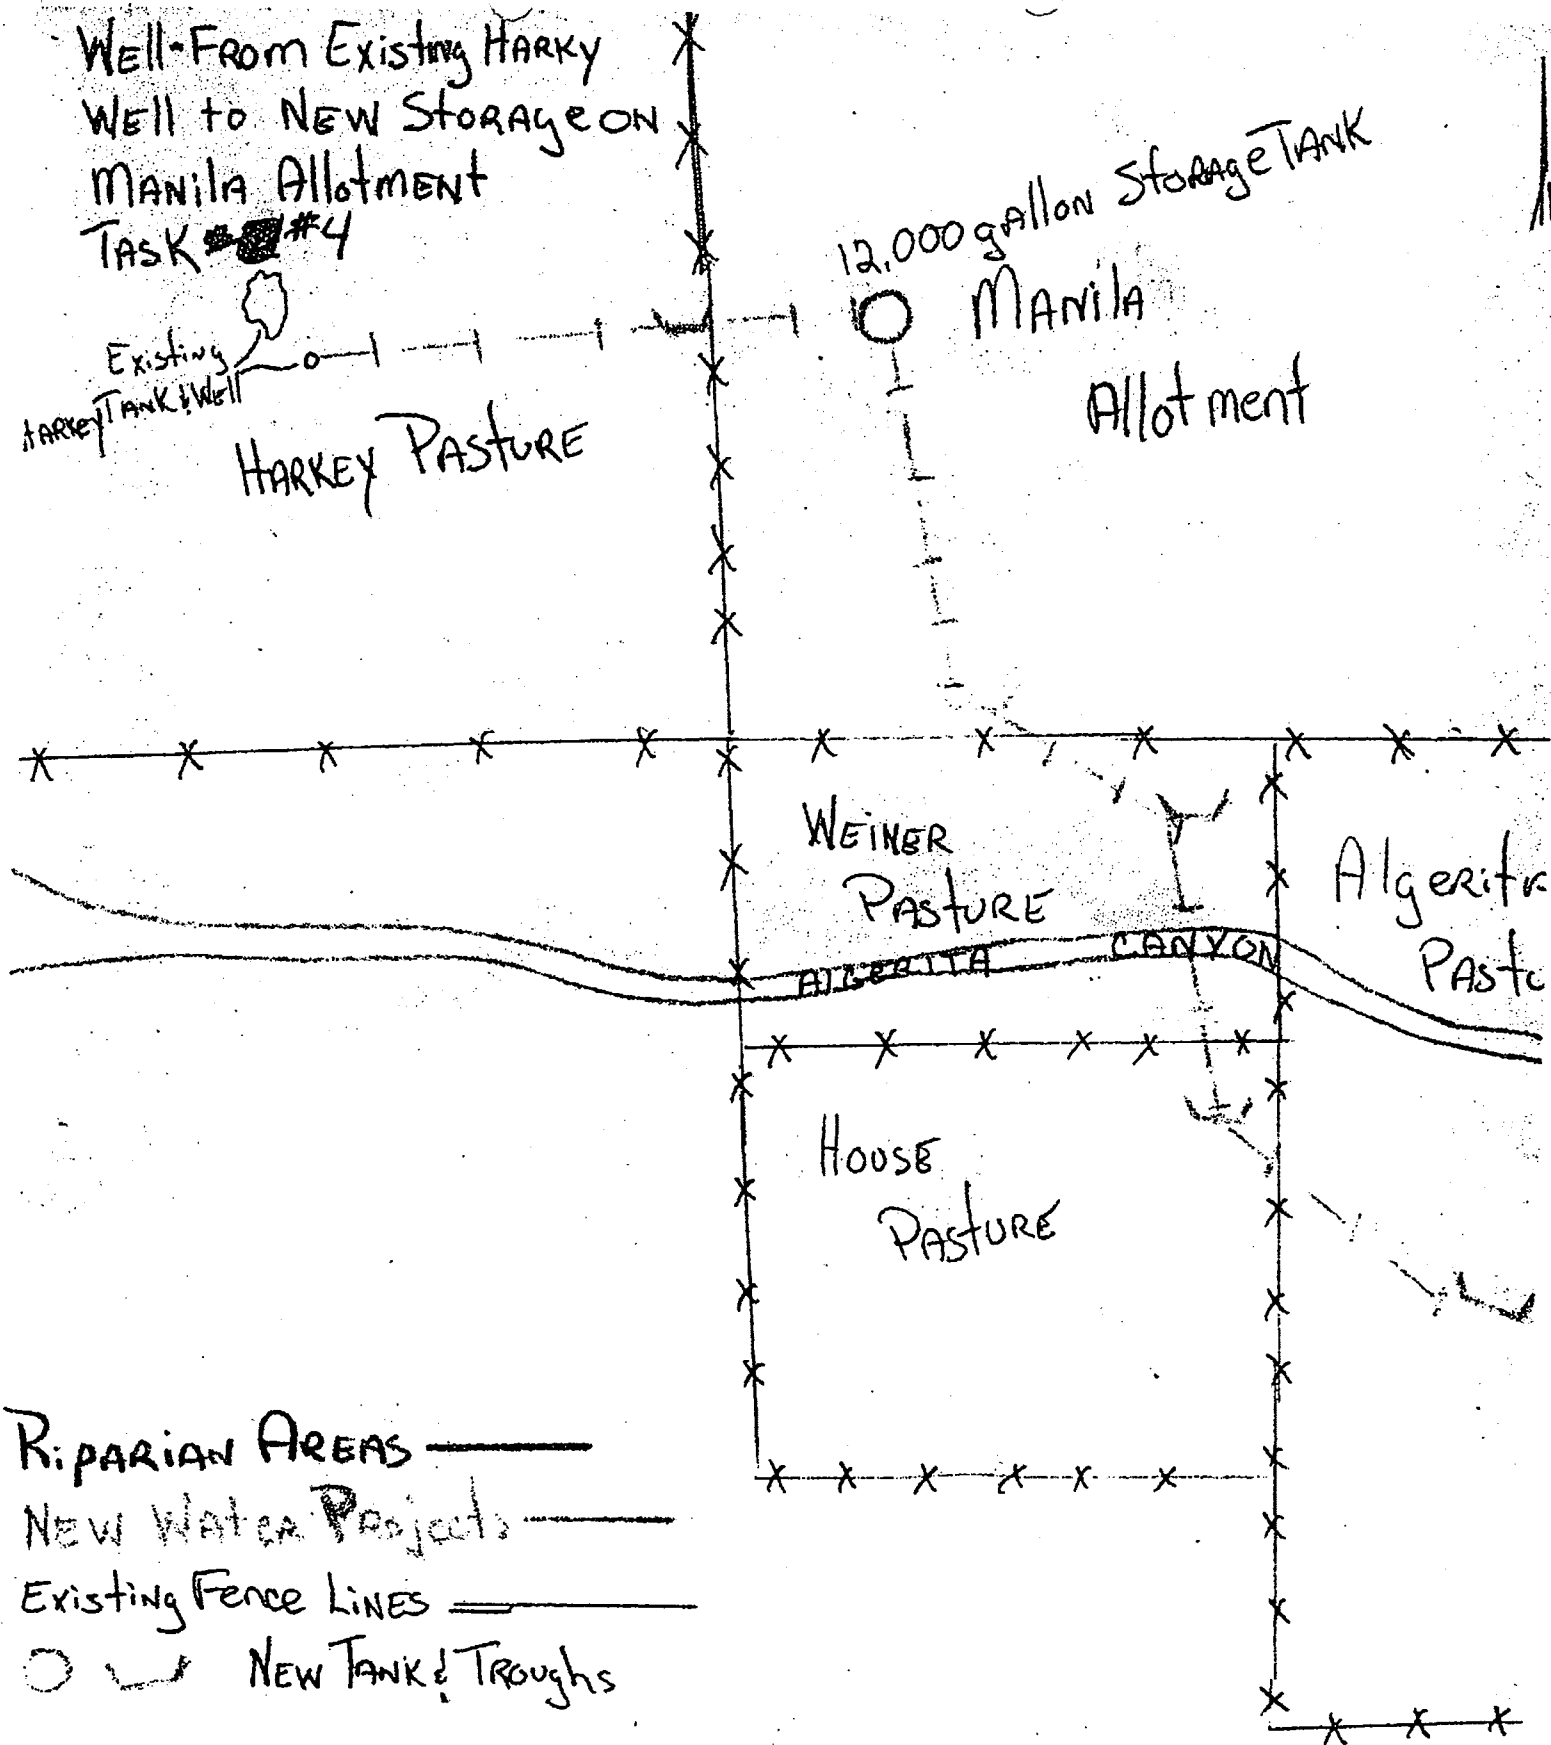 Well-From Existing Harky
Well to New Storage on
Manila Allotment
Task #4
12,000 gallon Storage Tank
Manila
Allotment
Existing
Harkey Tank & Well
Harkey Pasture
Weiner
Pasture
Algerita
Pastu
Algerita Canyon
House
Pasture
Riparian Areas
New Water Projects
Existing Fence Lines
New Tank & Troughs